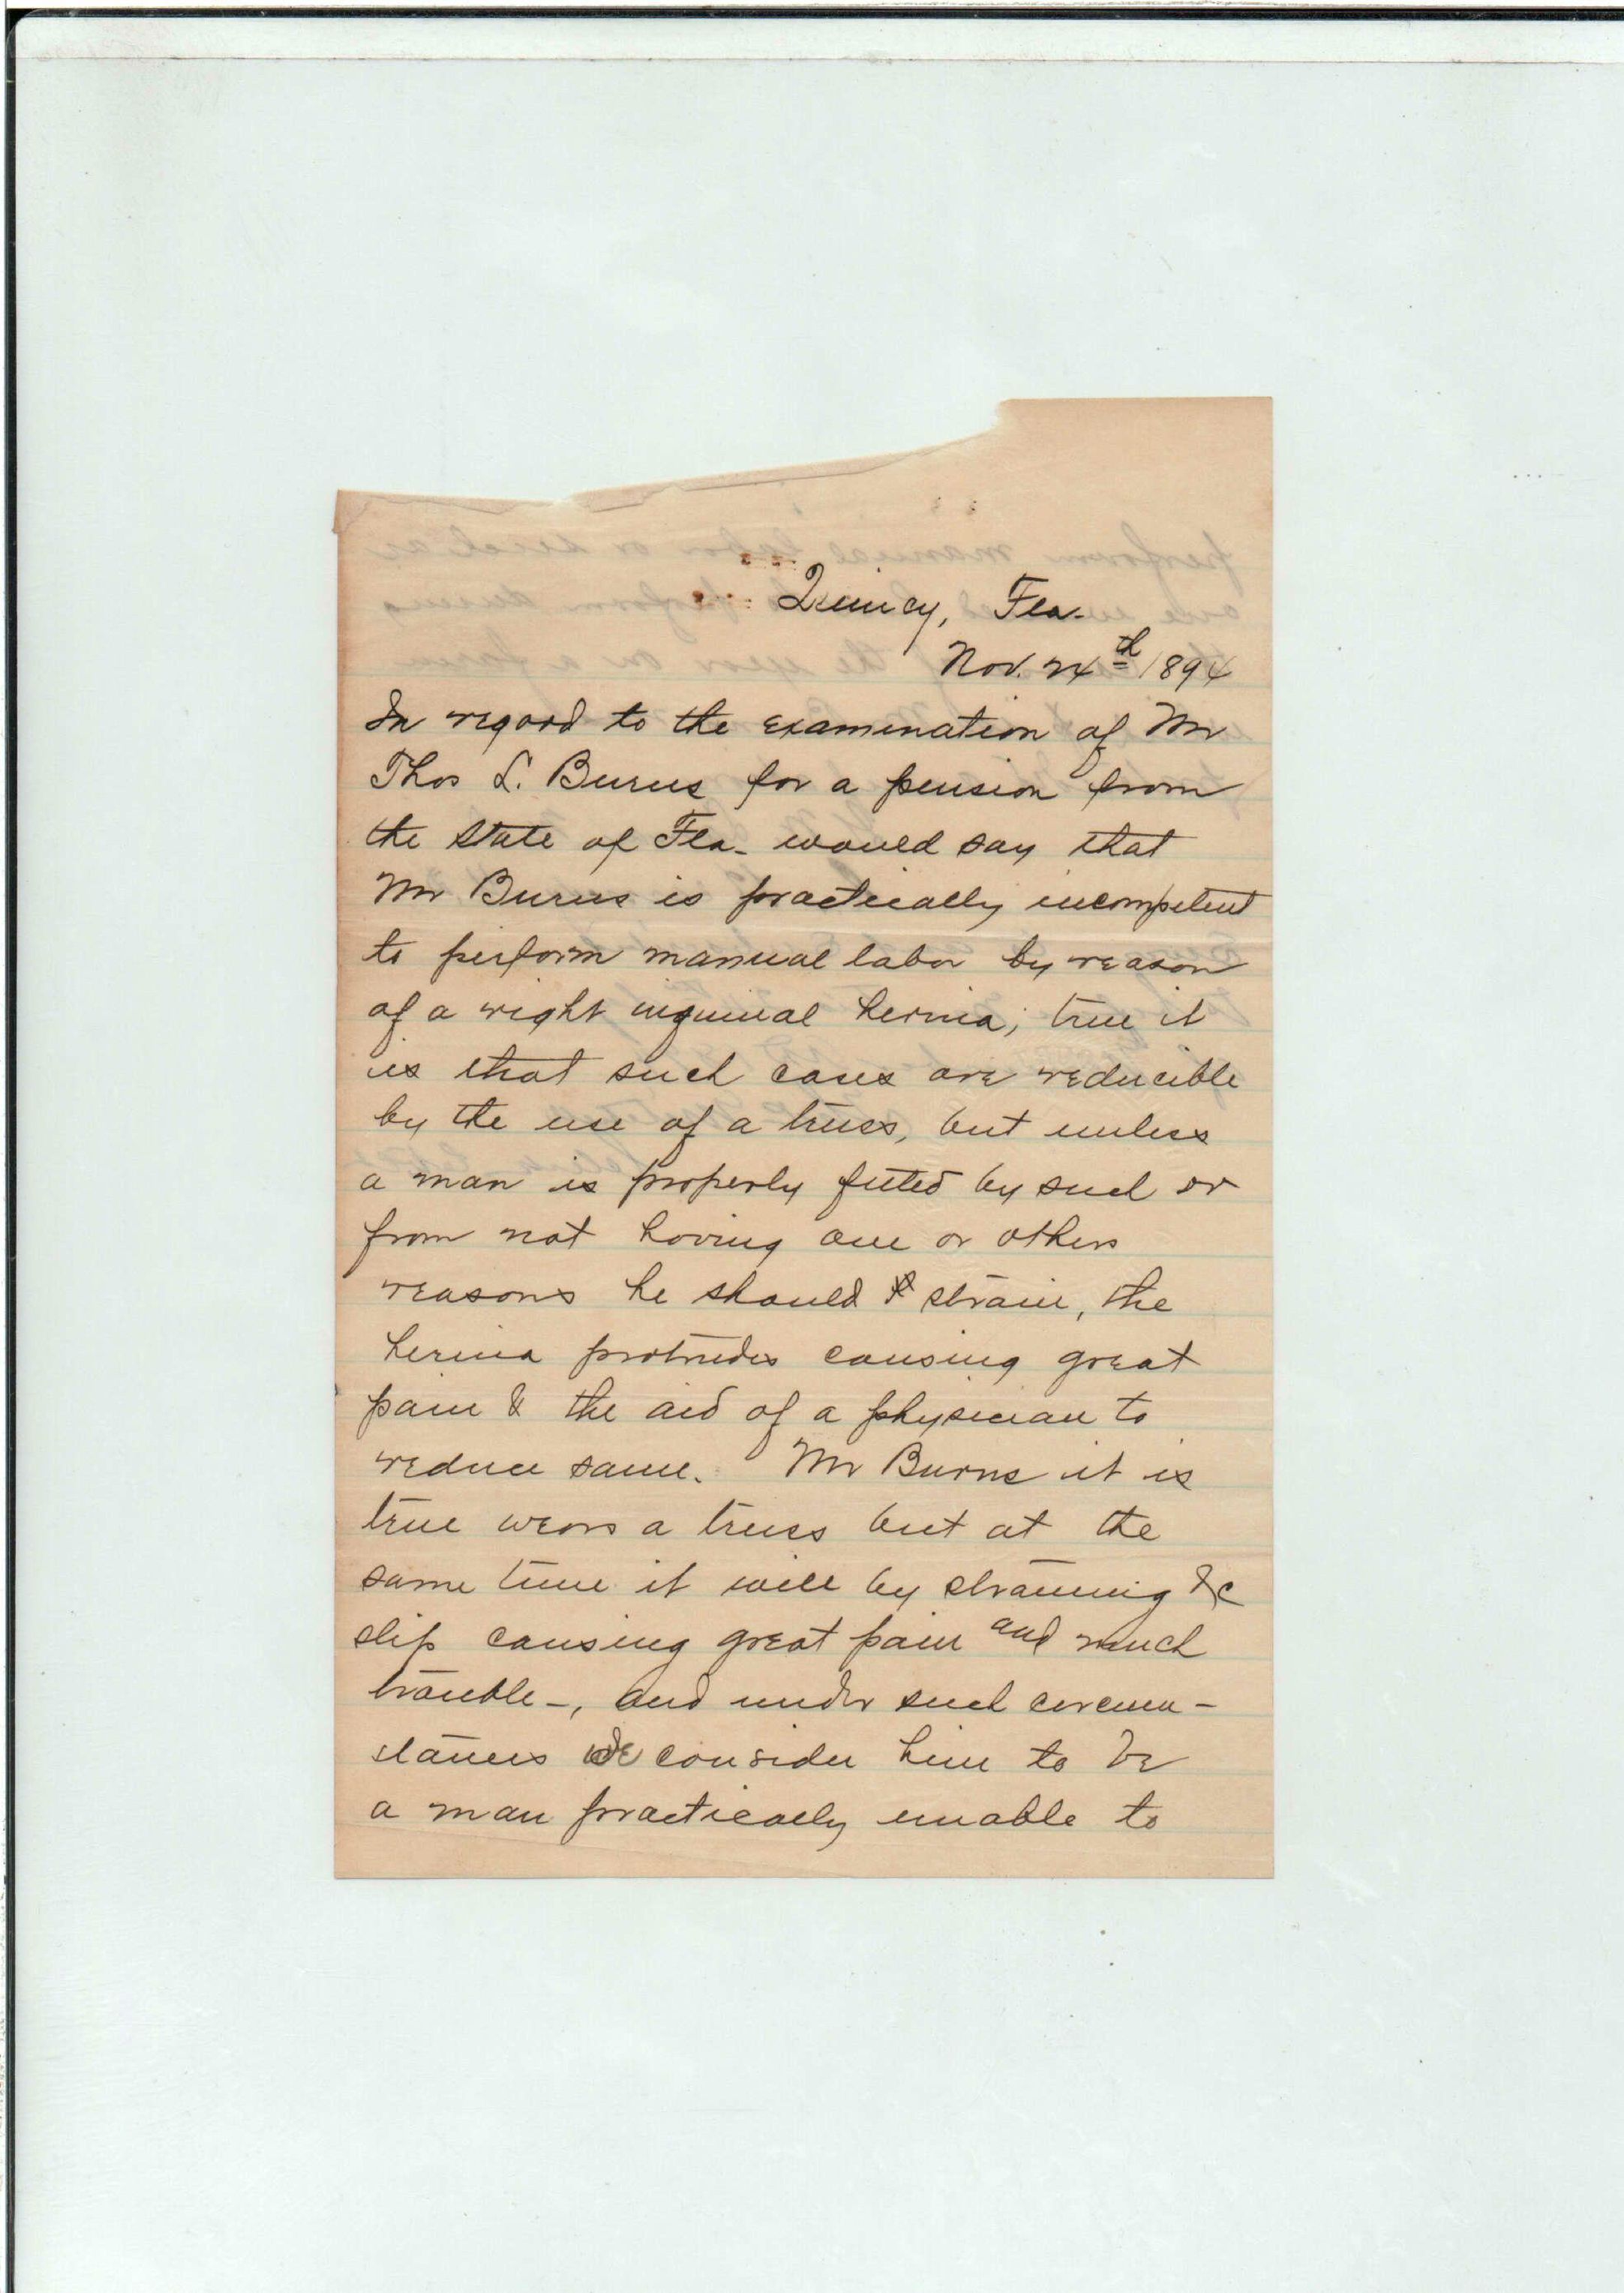 Quincy, Fla.
Nov. 24th 1894
In regard to the examination of Mr
Thos L. Burns for a pension from
the State of Fla. would say that
Mr Burns is practically incompetent
to perform manual labor by reason
of a right inguinal hernia; true it
is that such cases are reducible
by the use of a truss, but unless
a man is properly fitted by such or
from not having one or others
reasons he should strain, the
hernia protrudes causing great
pain & the aid of a physician to
reduce same. Mr Burns it is
true wears a truss but at the
same time it will by straining &c
slip causing great pain and much
trouble-, and under such circum-
stances we consider him to be
a man practically unable to